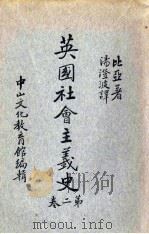 比亞著
湯澄波譯
英國社會主義史
第二卷
中山文化教育館編輯